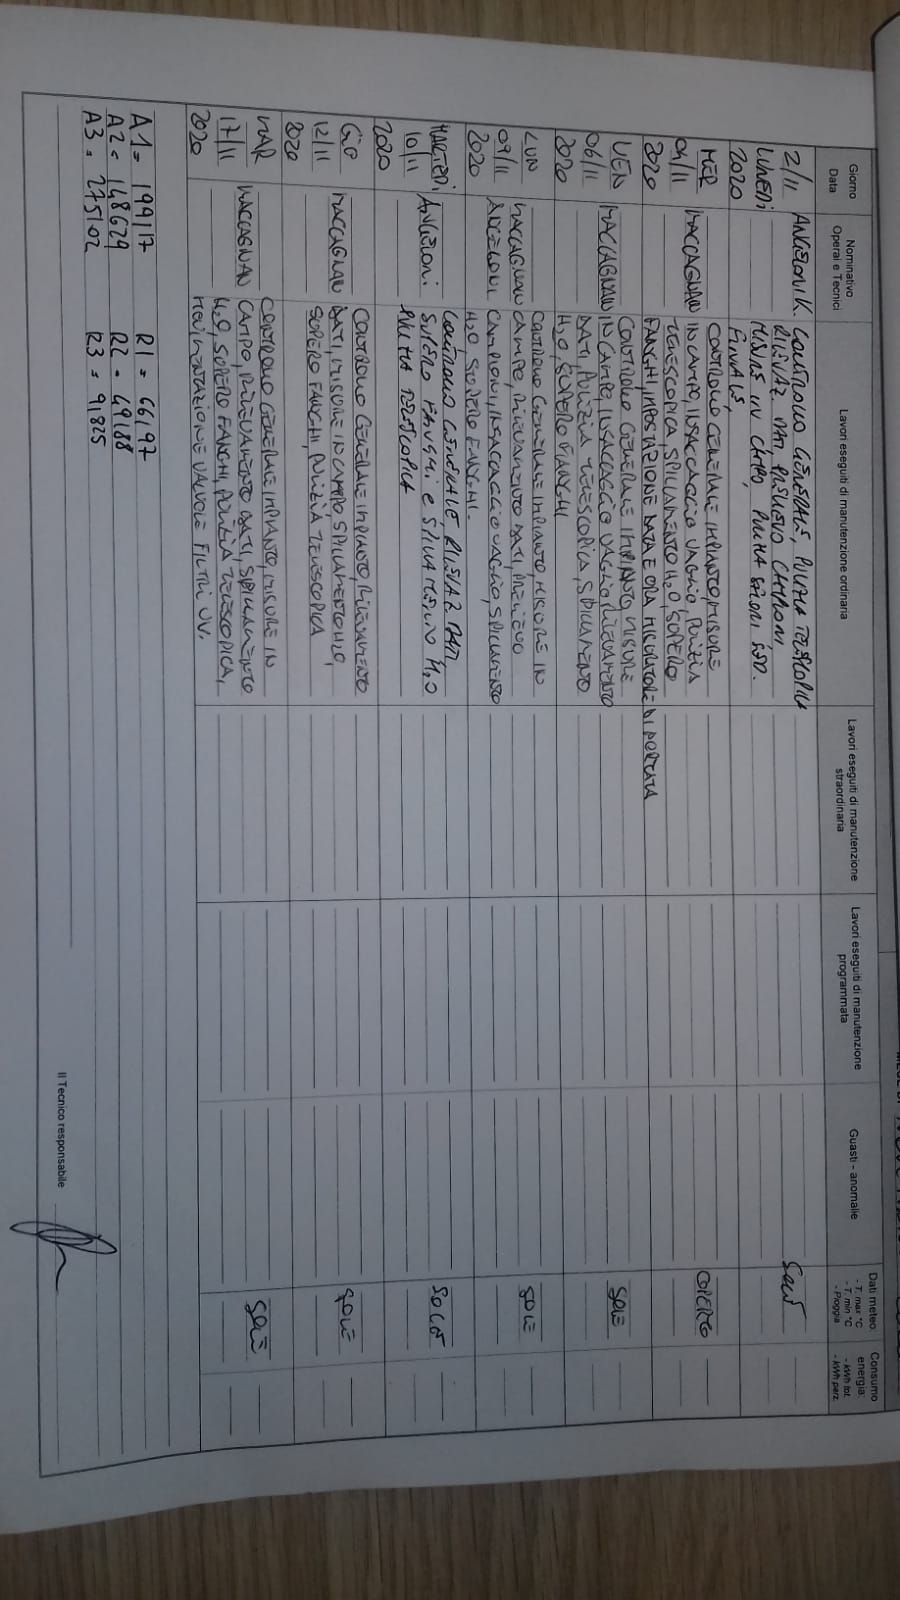 Giorno
Data
Nominativo
Operai e Tecnici
Lavori eseguiti di manutenzione ordinaria
Lavori eseguiti di manutenzione
straordinaria
Lavori eseguiti di manutenzione
programmata
Guasti - anomalie
Dati meteo:
- T. max °C
- T. min °C
- Pioggia
Consumo
energia:
- kWh tot.
- kWh parz.
2/11
LUNEDI
2020
ANGELONI K.
CONTROLLO GENERALE, PULITA TELESCOPICA
RILEVAZ. DATI, PRELIEVO CAMPIONI,
MISURE IN CAMPO, PULITA
FINALE,
MER
04/11
2020
MACCAGNAN
CONTROLLO GENERALE IMPIANTO, MISURE
IN CAMPO, INSACCAGGIO VAGLIO, PULIZIA
TELESCOPICA, SPILLAMENTO H2O, SUPERO
FANGHI, IMPOSTAZIONE DATA E ORA MISURATORE DI PORTATA
COPERTO
VEN
06/11
2020
MACCAGNAN
CONTROLLO GENERALE IMPIANTO, MISURE
IN CAMPO, INSACCAGGIO VAGLIO, RILEVAMENTO
DATI, PULIZIA TELESCOPICA, SPILLAMENTO
H2O, SUPERO FANGHI
SOLE
LUN
09/11
2020
MACCAGNAN
ANGELONI
CONTROLLO GENERALE IMPIANTO, MISURE IN
CAMPO, RILEVAMENTO DATI, PRELIEVO
CAMPIONI, INSACCAGGIO VAGLIO, SPILLAMENTO
H2O, SUPERO FANGHI.
SOLE
MARTEDI
10/11
2020
ANGELONI
CONTROLLO GENERALE, RILEVAZ. DATI
SUPERO FANGHI e SPILLAMENTO H2O
PULITA TELESCOPICA
SOLE
GIO
12/11
2020
MACCAGNAN
CONTROLLO GENERALE IMPIANTO, RILEVAMENTO
DATI, MISURE IN CAMPO SPILLAMENTO H2O,
SUPERO FANGHI, PULIZIA TELESCOPICA
SOLE
MAR
17/11
2020
MACCAGNAN
CONTROLLO GENERALE IMPIANTO, MISURE IN
CAMPO, RILEVAMENTO DATI, SPILLAMENTO
H2O, SUPERO FANGHI, PULIZIA TELESCOPICA,
MOVIMENTAZIONE VALVOLE FILTRI UV.
SOLE
A1= 19917 R1= 66197
A2= 148629 R2= 49188
A3= 275102 R3= 91825
Il Tecnico responsabile